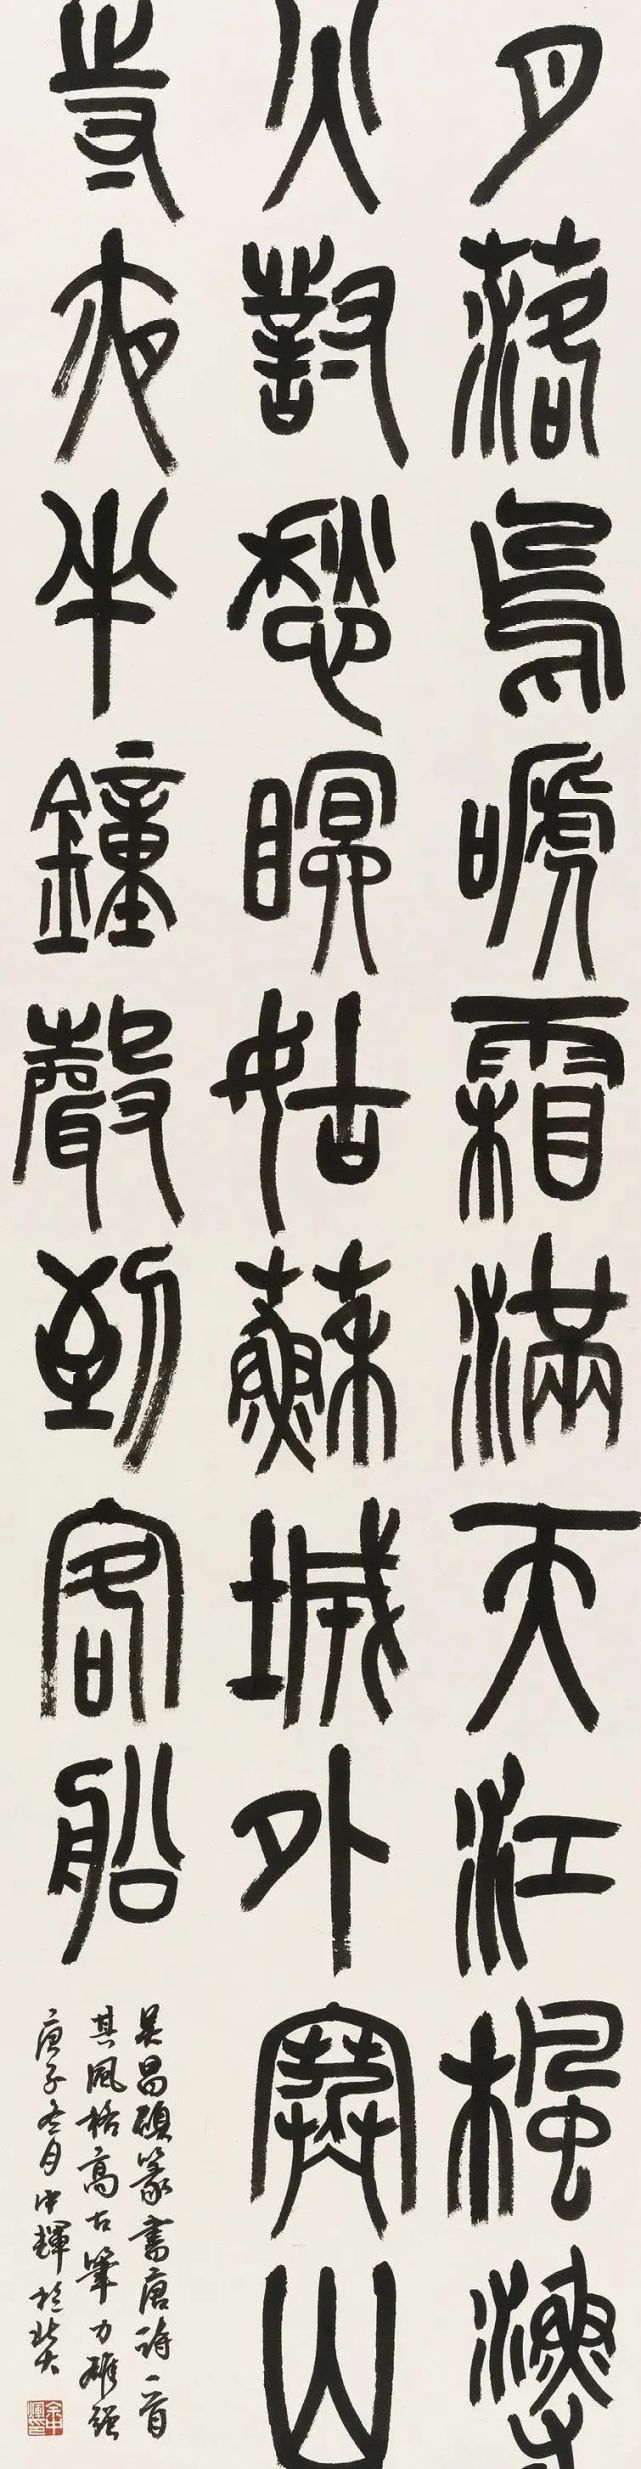 月落烏嗁霜滿天江楓漁
火對愁眠姑蘇城外寒山
寺夜半鐘聲到客船
吳昌碩篆書唐詩一首
其風格高古筆力雄强
庚子冬月中輝於北大